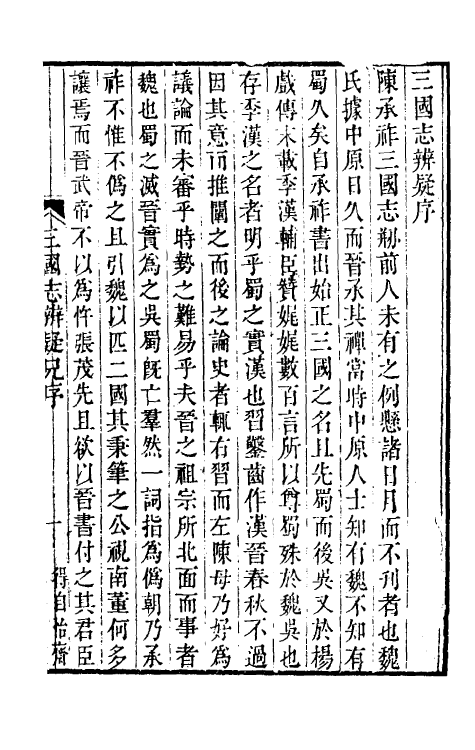 三國志辨疑序
陳承祚三國志剏前人未有之例懸諸日月而不刊者也魏
氏據中原日久而晉承其禪當時中原人士知有魏不知有
蜀久矣自承祚書出始正三國之名且先蜀而後吳又於楊
戲傳末載季漢輔臣贊娓娓數百言所以尊蜀殊於魏吳也
存季漢之名者明乎蜀之實漢也習鑿齒作漢晉春秋不過
因其意而推闡之而後之論史者輒右習而左陳毋乃好爲
議論而未審乎時勢之難易乎夫晉之祖宗所北面而事者
魏也蜀之滅晉實爲之吳蜀既亡羣然一詞指爲僞朝乃承
祚不惟不僞之且引魏以匹二國其秉筆之公視南董何多
讓焉而晉武帝不以爲忤張茂先且欲以晉書付之其君臣
三國志辨疑兄序
一
得自怡齋